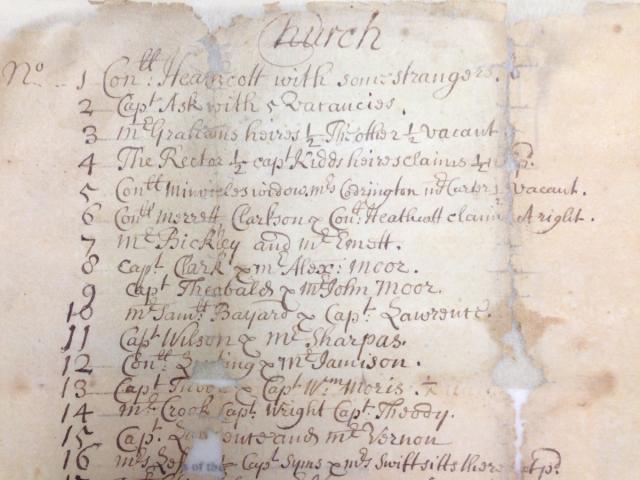 Church
No
1 Conll: Heathcott with some strangers.
2 Capt Ask with 5 Vacancies.
3 mr Grahams heires ½ The other ½ vacant
4 The Rector ½ capt Kidds heires claime ½ p.
5 Conll widow mrs Codrington vacant.
6 Conll merrett Clarkson & Conll: Heathcott claim A right.
7 mr Bickley and mr Emett.
8 capt Clark & mr Alex: moor.
9 capt Theobalds & mr John moor.
10 mr Samll Bayard & Capt Lawrente.
11 Capt Wilson & mr Sharpas.
12 Conll & mr Jamison.
13 Capt & Capt Wm Moris.
14 mr Crook Capt Wright Capt Theody.
15 Capt. and mr Vernon
16 mrs Capt Syms & mrs Swift sitts there p.
s of the